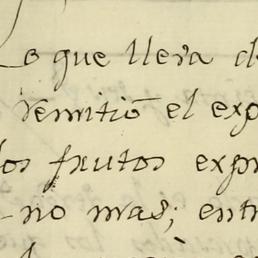 Lo que lleva d
remitió el exp
los frutos expr
no mas; entr